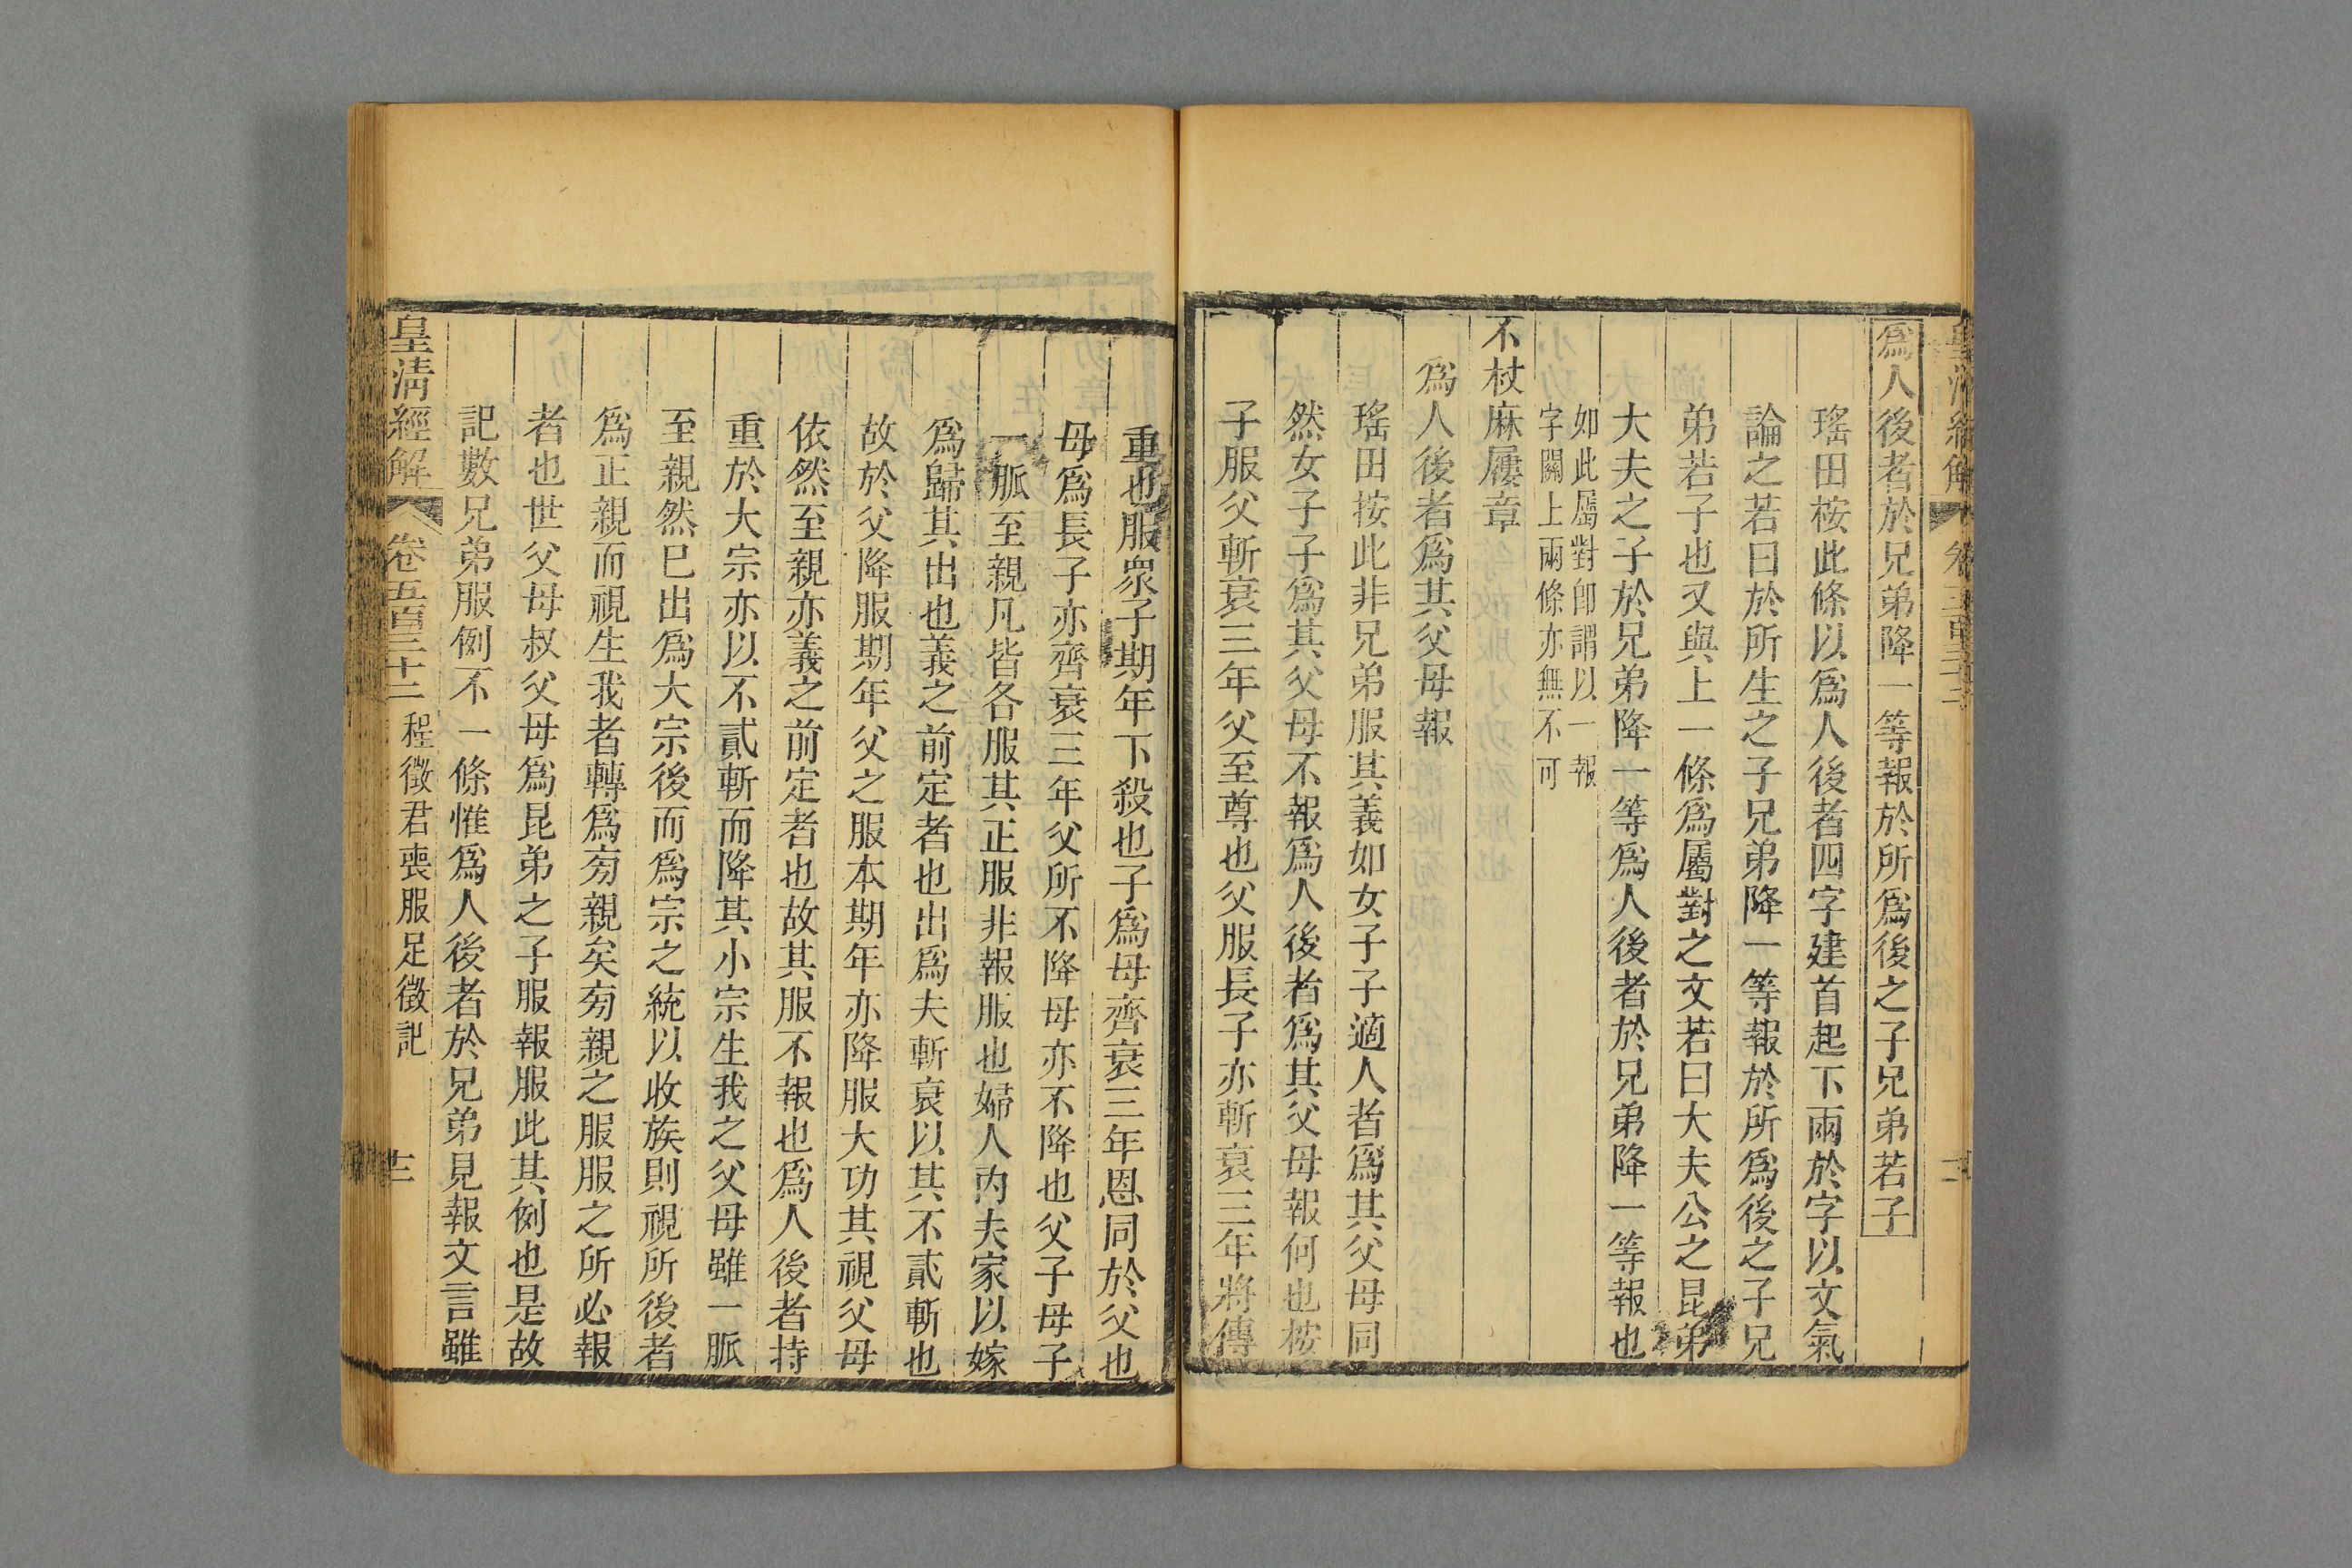 爲人後者於兄弟降一等報於所爲後之子兄弟若子
瑤田桉此條以爲人後者四字建首起下兩於字以文氣
論之若曰於所生之子兄弟降一等報於所爲後之子兄
弟若子也又與上一條爲屬對之文若曰大夫公之昆弟
大夫之子於兄弟降一等爲人後者於兄弟降一等報也
如此屬對卽謂以一報
字關上兩條亦無不可
不杖麻屨章
爲人後者爲其父母報
瑤田按此非兄弟服其義如女子子適人者爲其父母同
然女子子爲其父母不報爲人後者爲其父母報何也桉
子服父斬衰三年父至尊也父服長子亦斬衰三年將傳
重也服衆子期年下殺也子爲母齊衰三年恩同於父也
母爲長子亦齊衰三年父所不降母亦不降也父子母子
一脈至親凡皆各服其正服非報服也婦人內夫家以嫁
爲歸其出也義之前定者也出爲夫斬衰以其不貳斬也
故於父降服期年父之服本期年亦降服大功其視父母
依然至親亦義之前定者也故其服不報也爲人後者持
重於大宗亦以不貳斬而降其小宗生我之父母雖一脈
至親然巳出爲大宗後而爲宗之統以收族則視所後者
爲正親而視生我者轉爲旁親矣旁親之服服之所必報
者也世父母叔父母爲昆弟之子服報服此其例也是故
記數兄弟服例不一條惟爲人後者於兄弟見報文言雖
皇清經解
卷五百三十二
程徵君喪服足徵記